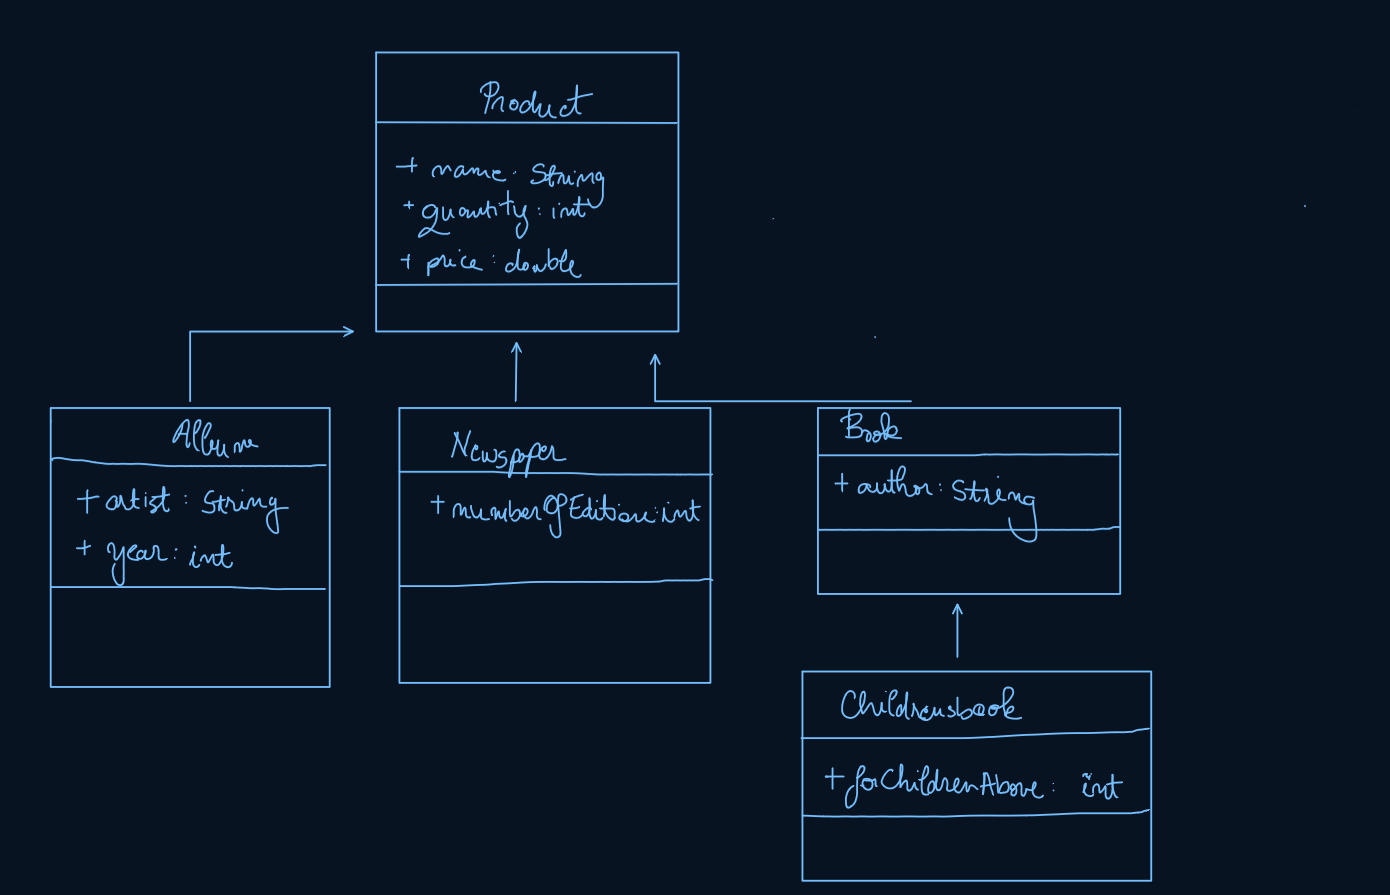 Product
+ name: String
+ quantity: int
+ price: double
Album
+ artist: String
+ year: int
Newspaper
+ numberOfEdition: int
Book
+ author: String
Childrensbook
+ forChildrenAbove: int